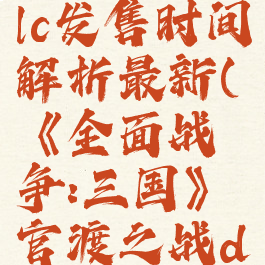 lc发售时间
解析最新(
《全面战
争:三国》
官渡之战d